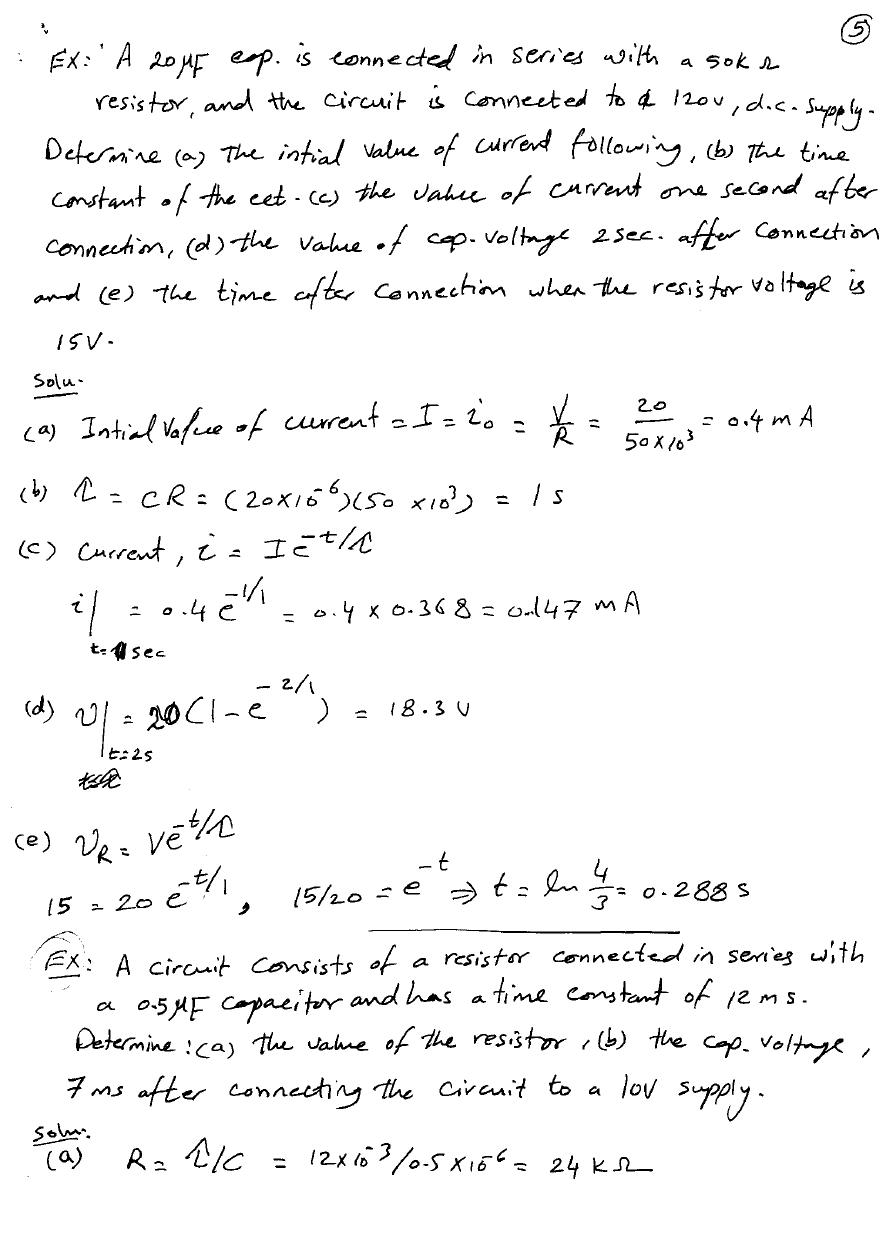 5
Ex: A 20 μF cap. is connected in series with a 50k Ω
resistor, and the circuit is connected to a 120v, d.c. supply.
Determine (a) The intial value of current following, (b) The time
constant of the cct. (c) the value of current one second after
connection, (d) the value of cap. voltage 2 sec. after connection
and (e) the time after connection when the resistor voltage is
15V.
Solu.
(a) Intial Value of current = I = i₀ = V/R = 20/50×10³ = 0.4 mA
(b) τ = CR = (20×10⁻⁶)(50 ×10³) = 1 s
(c) Current, i = I e^(-t/τ)
i| t=1sec = 0.4 e^(-1/1) = 0.4 × 0.368 = 0.147 mA
(d) v| t=2s = 20(1-e^(-2/1)) = 18.3 V
(e) v_R = V e^(-t/τ)
15 = 20 e^(-t/1), 15/20 = e^(-t) ⇒ t = ln 4/3 = 0.288 s
Ex: A circuit consists of a resistor connected in series with
a 0.5 μF capacitor and has a time constant of 12 ms.
Determine: (a) the value of the resistor, (b) the cap. voltage,
7 ms after connecting the circuit to a 10V supply.
Solu:
(a) R = τ/C = 12×10⁻³/0.5×10⁻⁶ = 24 kΩ